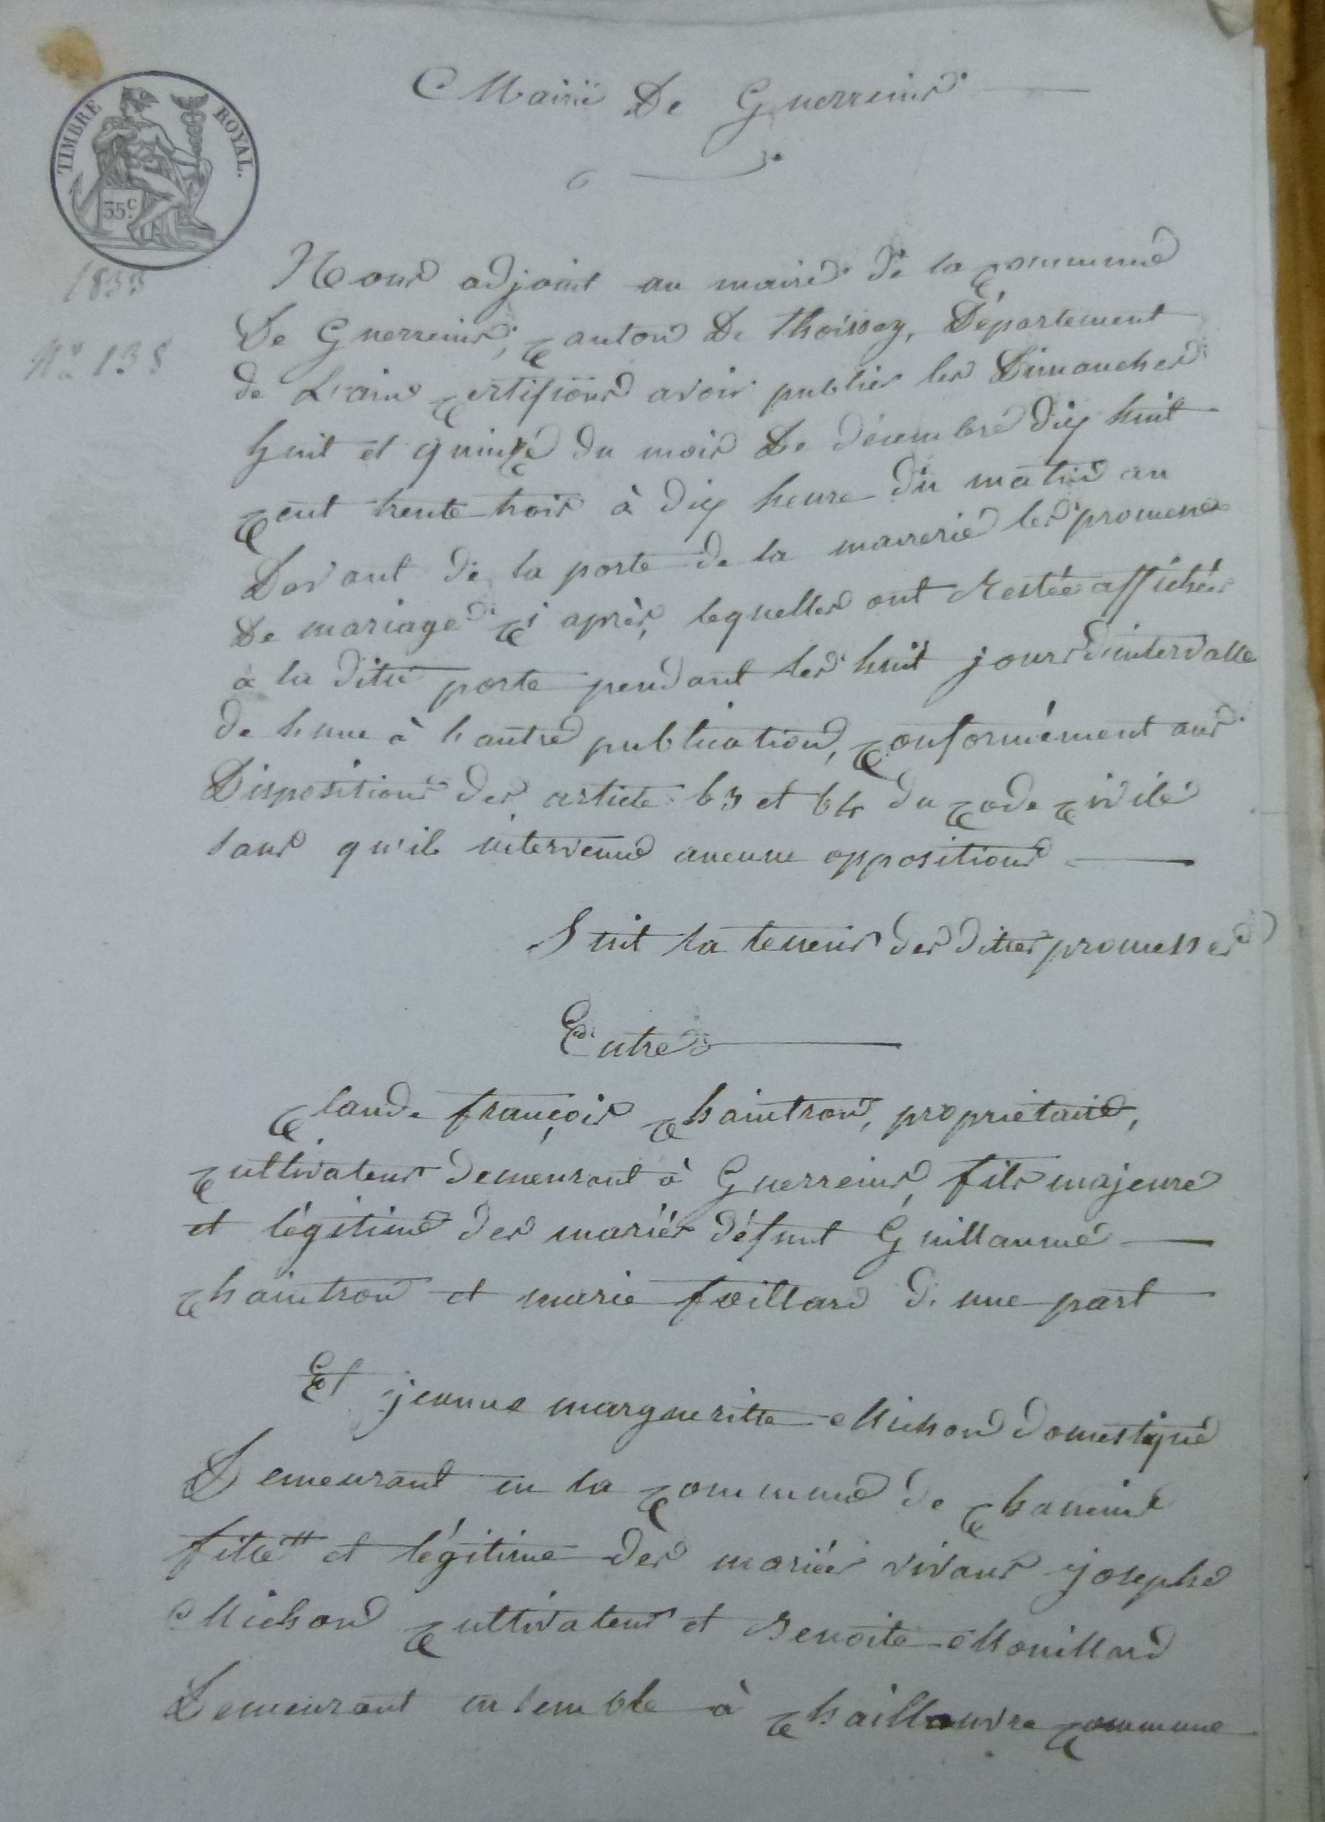 Mairie De Guerreins
TIMBRE ROYAL.
35c
1833
No 138
Nous adjoint au maire de la Commune
De Guerreins, Canton De thoissey, Département
de L'ain Certifions avoir publier les Dimanches
huit et quinze du mois De décembre dix huit
Cent trente trois à dix heure du matin au
Devant de la porte de la mairerie les promesses
De mariage Ci après, lequelles ont Restée affichées
à la dite porte pendant les huit jours d'intervalle
de hune à hautre publication, Conformément aux
Dispositions des article 63 et 64 du Code Civile
sans qu'il intervenue aucune oppositions
Suit la teneur des dittes promesses
Entre
Claude françois Chaintron, propriétaire,
Cultivateur demeurant à Guerreins, fils majeure
et légitime des mariés défunt Guillaume
Chaintron et marie foillard d'une part
Et jeanne margueritte Michon domestique
Demeurant en la Commune de Chaneins
fille et légitime des mariés vivans joseph
Michon Cultivateur et Benoite Mouillard
Demeurant ensemble à Chaillouvre Commune